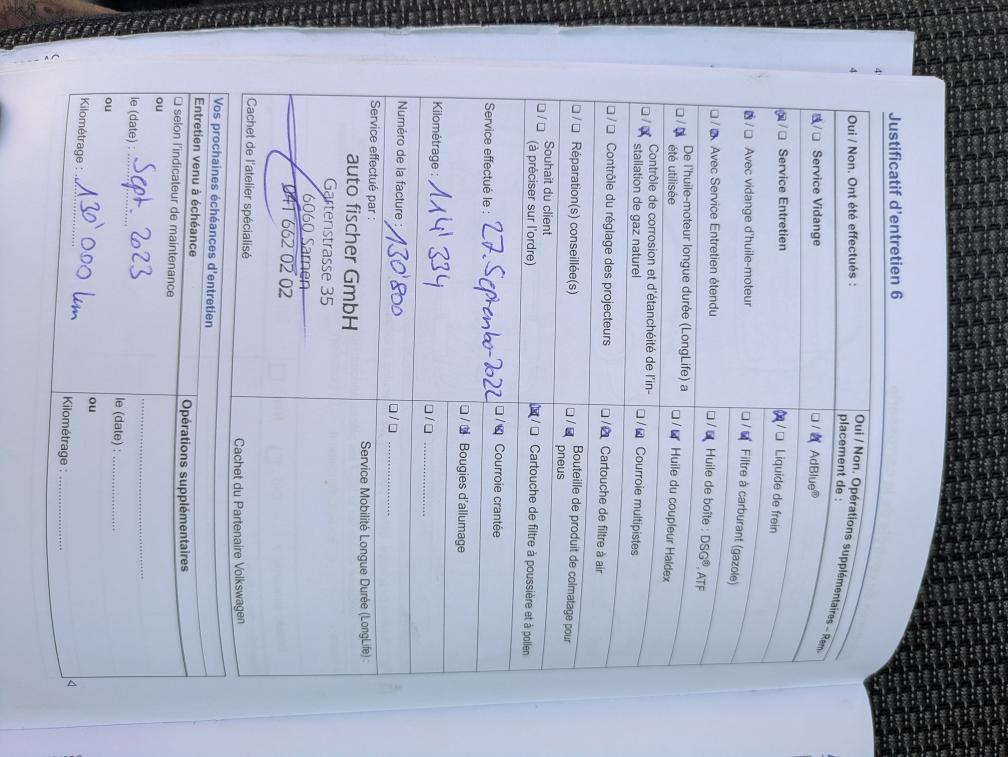 Justificatif d'entretien 6
Oui / Non. Ont été effectués :
☒/☐ Service Vidange
☒/☐ Service Entretien
☒/☐ Avec vidange d'huile-moteur
☐/☒ Avec Service Entretien étendu
☐/☒ De l'huile-moteur longue durée (LongLife) a
été utilisée
☐/☒ Contrôle de corrosion et d'étanchéité de l'in-
stallation de gaz naturel
☐/☐ Contrôle du réglage des projecteurs
☐/☐ Réparation(s) conseillée(s)
☐/☐ Souhait du client
(à préciser sur l'ordre)
Service effectué le : 27. September 2022
Kilométrage : 114'334
Numéro de la facture : 130'800
Service effectué par :
auto fischer GmbH
Gartenstrasse 35
6060 Sarnen
041 662 02 02
Cachet de l'atelier spécialisé
Oui / Non. Opérations supplémentaires – Rem-
placement de :
☐/☒ AdBlue®
☒/☐ Liquide de frein
☐/☒ Filtre à carburant (gazole)
☐/☒ Huile de boîte : DSG®, ATF
☐/☒ Huile du coupleur Haldex
☐/☒ Courroie multipistes
☐/☒ Cartouche de filtre à air
☐/☒ Bouteille de produit de colmatage pour
pneus
☒/☐ Cartouche de filtre à poussière et à pollen
☐/☒ Courroie crantée
☐/☒ Bougies d'allumage
☐/☐ ..................
☐/☐ ..................
Service Mobilité Longue Durée (LongLife) :
Cachet du Partenaire Volkswagen
Vos prochaines échéances d'entretien
Entretien venu à échéance
☐ selon l'indicateur de maintenance
ou
le (date) : Sept. 2023
ou
Kilométrage : 130'000 km
Opérations supplémentaires
..................................
le (date) : ...............
ou
Kilométrage : ...............